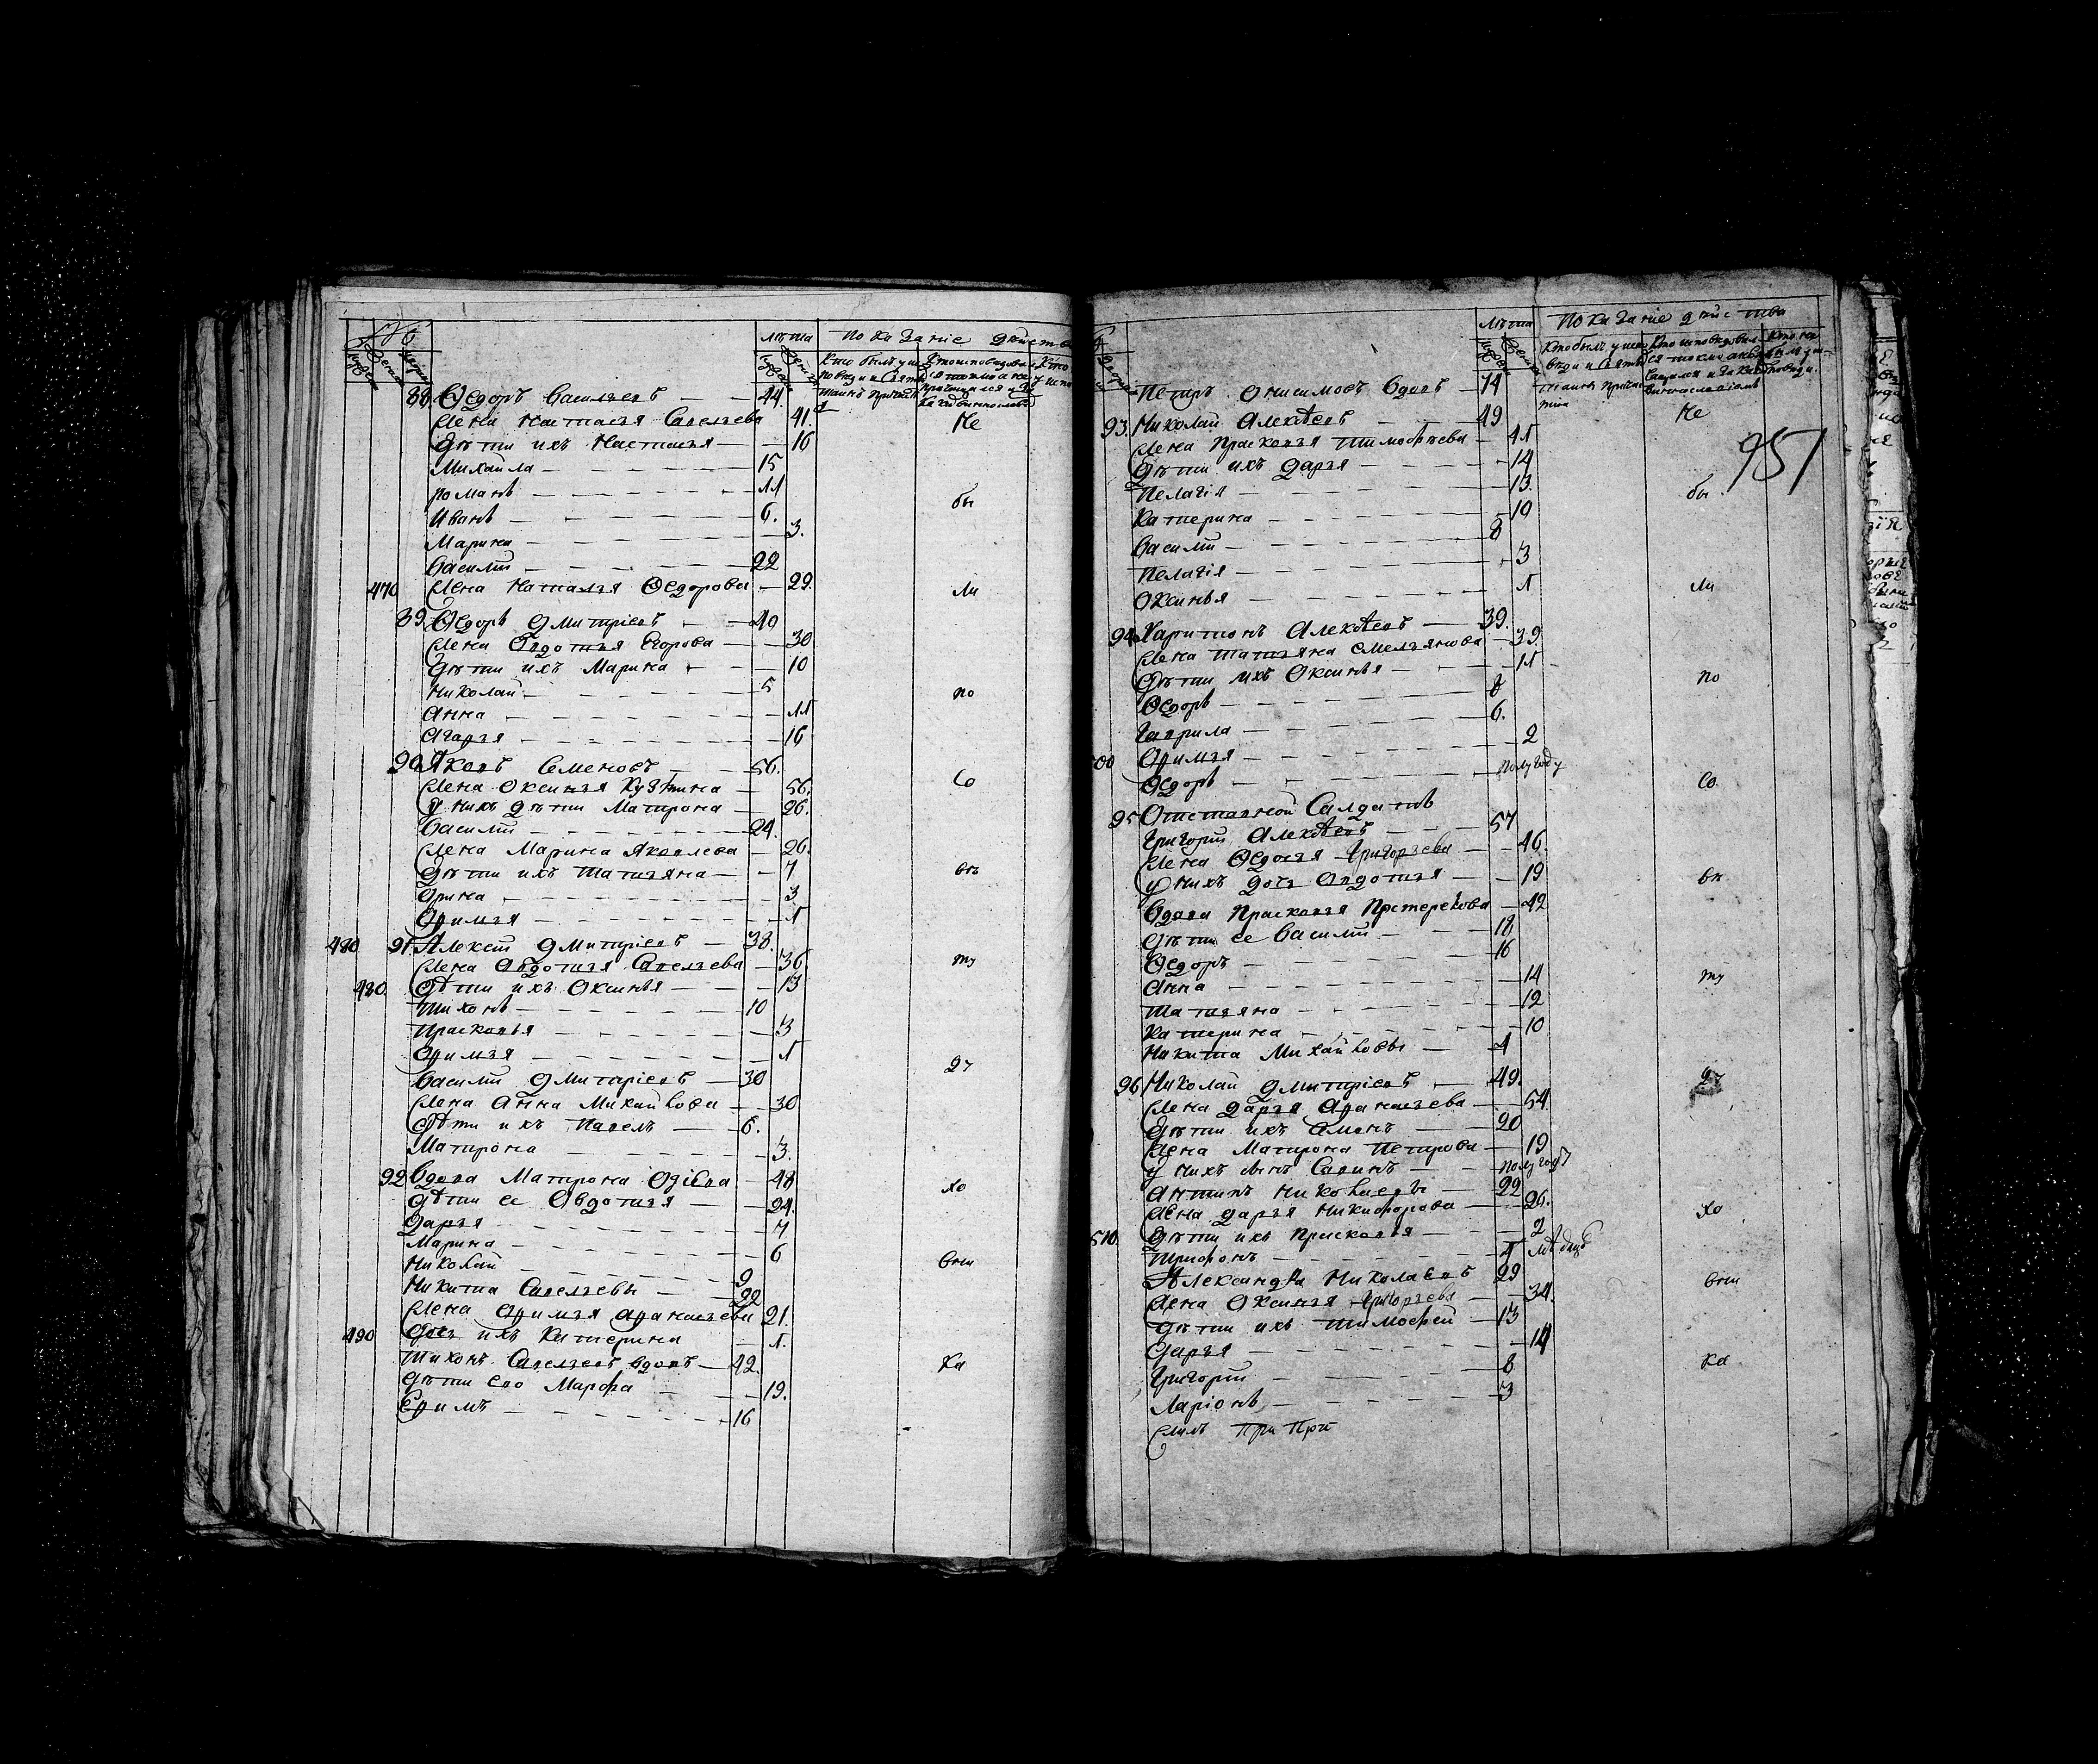 №
лѣта
показание действа
88 Ѳедоръ Васильевъ 44
Жена Настасья Савельева 41
Дѣти ихъ Настасья 16
Не
Михайла 15
романъ 11
Иванъ 6
бы
Марина 3
Василий 22
470 Жена Наталья Ѳедорова 29
ли
89 Ѳедоръ Дмитриевъ 40
Жена Авдотья Егорова 30
Дѣти ихъ Марина 10
Николай 5
по
Анна 11
Агарья 16
90 Яковъ Семеновъ 56
Жена Оксинья Кузмина 56
Со
у нихъ дѣти Матрона 26
Василий 24
Жена Марина Яковлева 26
Дѣти ихъ Татьяна 7
вѣ
Орина 3
Афимья 1
480 91 Алексѣй Дмитриевъ 38
Жена Авдотья Савельева 36
ту
480 Дѣти ихъ Оксинья 13
Тихонъ 10
Прасковья 3
Афимья 1
Василий Дмитриевъ 30
Жена Анна Михайлова 30
Дѣти ихъ Павелъ 6
Матрона 3
92 Вдова Матрона 48
Дѣти ее Авдотья 24
хо
Дарья 7
Марина 6
Николай 9
Никита Савельевы 22
Жена Афимья Афанасьева 21
490 Дочь ихъ Катерина 1
Тихонъ Савельевъ вдовъ 42
ка
Дѣти ево Марфа 19
Ефимъ 16
лѣта
показание действа
Петръ Онисимовъ Вдовъ 74
93 Николай Алексѣевъ 49
Не
951
Жена Прасковья Тимофѣева 41
Дѣти ихъ Дарья 14
Пелагия 13
бы
Катерина 10
Василий 8
Пелагия 3
Оксинья 1
ли
94 Харитонъ Алексѣевъ 39
Жена Татьяна Емельянова 39
Дѣти ихъ Оксинья 11
по
Ѳедоръ 8
Гаврила 6
Афимья 2
Ѳедоръ полугоду
Со
95 Отставной Салдатъ
Григорий Алексѣевъ 57
Жена Ѳедосья Григорьева 46
у нихъ дочь Авдотья 19
вѣ
Вдова Прасковья 42
Дѣти ее Василий 18
Ѳедоръ 16
Анна 14
ту
Татьяна 12
Катерина 10
Никита Михайловы 4
96 Николай Дмитриевъ 49
Жена Дарья Афанасьева 54
Дѣти ихъ 20
Жена Матрона Петрова 19
у нихъ сынъ полугоду
Антипъ Николаевъ 22
Жена Дарья Никифорова 26
хо
510 Дѣти ихъ Прасковья 2
Трифонъ
Александра Николаевъ 29
Жена Оксинья Григорьева 34
Дѣти ихъ Тимофей 13
Дарья 14
Григорий 8
ка
Ларионъ 3